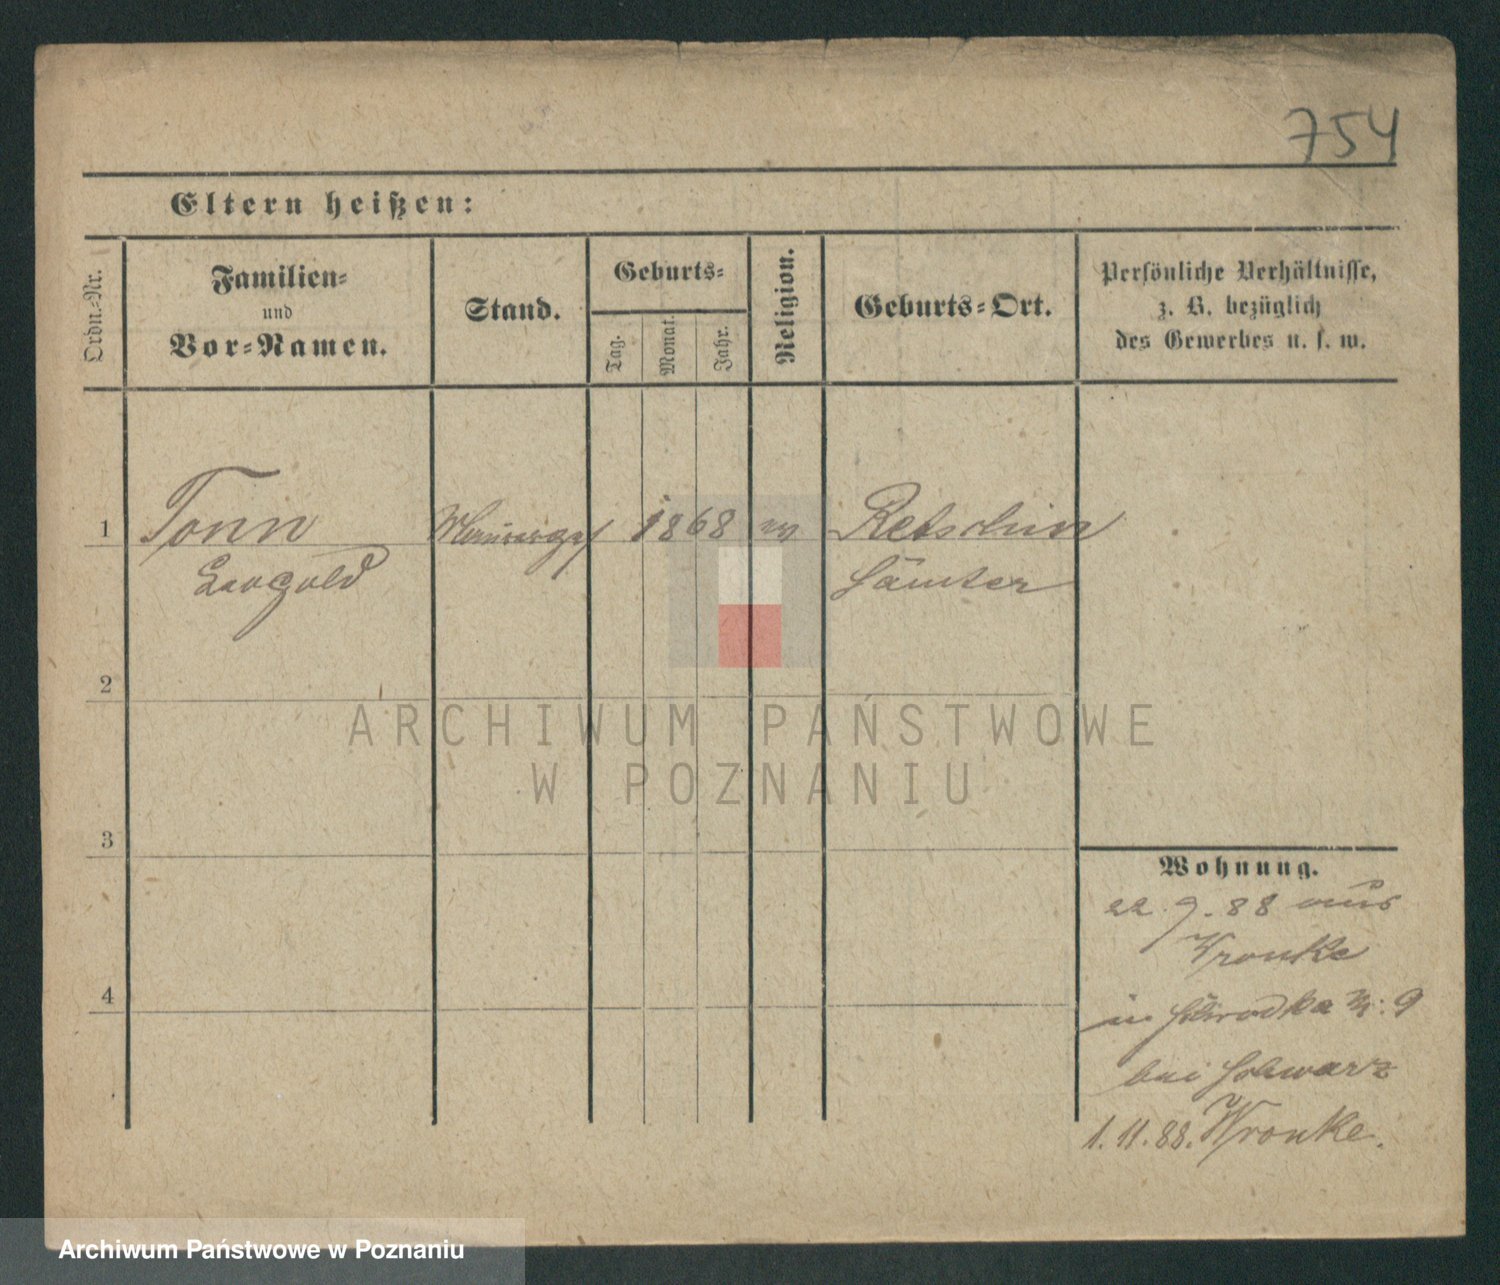 754
Eltern heißen:
Ordn.-Nr.
Familien-
und
Vor-Namen.
Stand.
Geburts-
Tag.
Monat.
Jahr.
Religion.
Geburts-Ort.
Persönliche Verhältnisse,
z. B. bezüglich
des Gewerbes u. s. w.
1 Tonn 1868 ev Retschin
Leopold Samter
2
3
4
Wohnung.
22.9.88 aus
Wronke
in Schrodka Nr: 9
bei Schwarz
1.11.88. Wronke.
ARCHIWUM PAŃSTWOWE
W POZNANIU
Archiwum Państwowe w Poznaniu